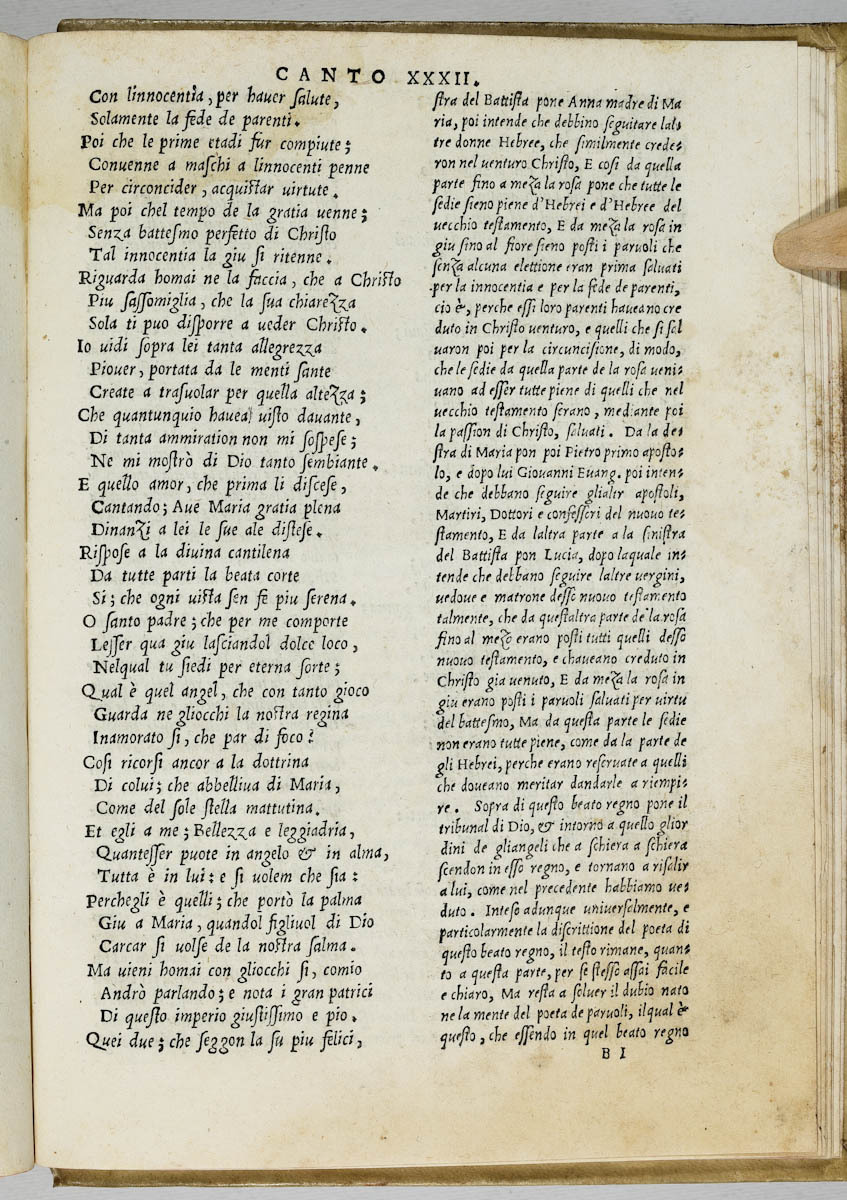 CANTO XXXII.
Con linnocentia, per hauer ſalute,
Solamente la fede de parenti.
Poi che le prime etadi fur compiute;
Conuenne a maſchi a linnocenti penne
Per circoncider, acquiſtar uirtute.
Ma poi chel tempo de la gratia uenne;
Senza batteſmo perfetto di Chriſto
Tal innocentia la giu ſi ritenne.
Riguarda homai ne la faccia, che a Chriſto
Piu ſaſſomiglia, che la ſua chiarezza
Sola ti puo diſporre a ueder Chriſto.
Io uidi ſopra lei tanta allegrezza
Piouer, portata da le menti ſante
Create a traſuolar per quella altezza;
Che quantunquio hauea uiſto dauante,
Di tanta ammiration non mi ſoſpeſe;
Ne mi moſtrò di Dio tanto ſembiante.
E quello amor, che prima li diſceſe,
Cantando; Aue Maria gratia plena
Dinanzi a lei le ſue ale diſteſe.
Riſpoſe a la diuina cantilena
Da tutte parti la beata corte
Si; che ogni uiſta ſen fe piu ſerena.
O ſanto padre; che per me comporte
Leſſer qua giu laſciandol dolce loco,
Nelqual tu ſiedi per eterna ſorte;
Qual è quel angel, che con tanto gioco
Guarda ne gliocchi la noſtra regina
Inamorato ſi, che par di foco?
Coſi ricorſi ancor a la dottrina
Di colui; che abbelliua di Maria,
Come del ſole ſtella mattutina.
Et egli a me; Bellezza e leggiadria,
Quanteſſer puote in angelo & in alma,
Tutta è in lui: e ſi uolem che ſia:
Perchegli è quelli; che portò la palma
Giu a Maria, quandol figliuol di Dio
Carcar ſi uolſe de la noſtra ſalma.
Ma uieni homai con gliocchi ſi, comio
Andrò parlando; e nota i gran patrici
Di queſto imperio giuſtiſſimo e pio.
Quei due; che ſeggon la ſu piu felici,
ſtra del Battiſta pone Anna madre di Ma
ria, poi intende che debbino ſeguitare lal-
tre donne Hebree, che ſimilmente crede-
ron nel uenturo Chriſto, E coſi da quella
parte fino a meza la roſa pone che tutte le
ſedie ſieno piene d'Hebrei e d'Hebree del
uecchio teſtamento, E da meza la roſa in
giu ſino al fiore ſieno poſti i paruoli che
ſenza alcuna elettione eran prima ſaluati
per la innocentia e per la fede de parenti,
cio è, perche eſſi loro parenti haueano cre
duto in Chriſto uenturo, e quelli che ſi ſal
uaron poi per la circunciſione, di modo,
che le ſedie da quella parte de la roſa ueni-
uano ad eſſer tutte piene di quelli che nel
uecchio teſtamento ſerano, mediante poi
la paſſion di Chriſto, ſaluati. Da la de-
ſtra di Maria pon poi Pietro primo apoſto-
lo, e dopo lui Giouanni Euang. poi inten-
de che debbano ſeguire glialtr apoſtoli,
Martiri, Dottori e confeſſori del nuouo te-
ſtamento, E da laltra parte a la ſiniſtra
del Battiſta pon Lucia, dopo laquale in-
tende che debbano ſeguire laltre uergini,
uedoue e matrone deſſo nuouo teſtamento
talmente, che da queſtaltra parte de la roſa
fino al mezo erano poſti tutti quelli deſſo
nuouo teſtamento, e chaueano creduto in
Chriſto gia uenuto, E da meza la roſa in
giu erano poſti i paruoli ſaluati per uirtu
del batteſmo, Ma da queſta parte le ſedie
non erano tutte piene, come da la parte de
gli Hebrei, perche erano reſeruate a quelli
che doueano meritar dandarle a riempi-
re. Sopra di queſto beato regno pone il
tribunal di Dio, & intorno a quello glior
dini de gliangeli che a ſchiera a ſchiera
ſcendon in eſſo regno, e tornano a riſalir
a lui, come nel precedente habbiamo ue-
duto. Inteſo adunque uniuerſalmente, e
particolarmente la diſcrittione del poeta di
queſto beato regno, il teſto rimane, quan-
to a queſta parte, per ſe ſteſſo aſſai facile
e chiaro, Ma reſta a ſoluer il dubio nato
ne la mente del poeta de paruoli, ilqual è
queſto, che eſſendo in quel beato regno
B I